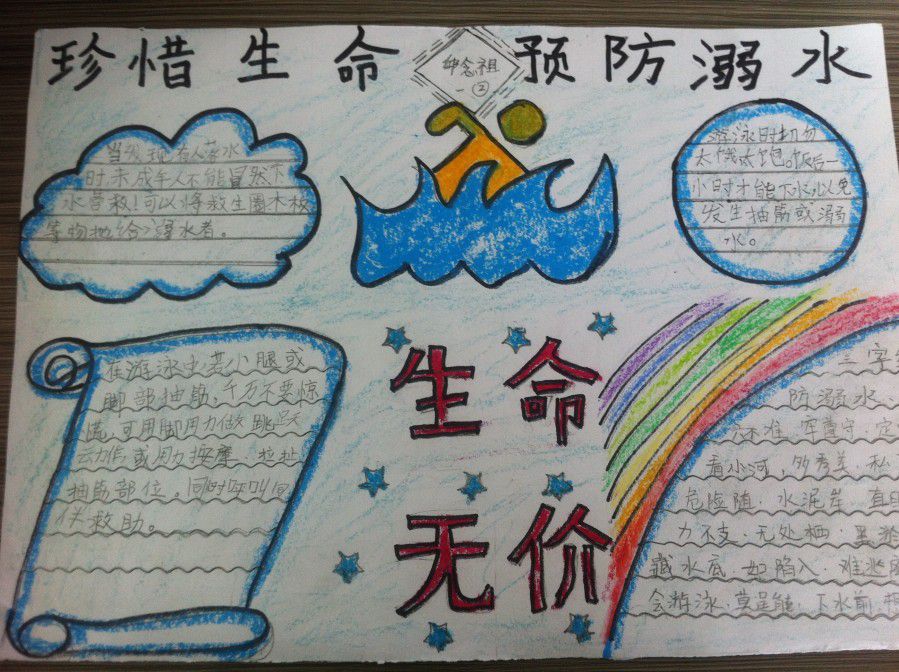 珍惜生命 预防溺水
钟念祖
一②
当发现有人落水
时未成年人不能冒然下
水营救!可以将救生圈木板
等物抛给溺水者。
游泳时切勿
太饿太饱。饭后一
小时才能下水以免
发生抽筋或溺
水。
生命
无价
在游泳中若小腿或
脚部抽筋,千万不要惊
慌,可用脚用力做跳跃
云力作或用力按摩、拉扯
抽筋部位,同时呼叫同
伙救助。
三字
防溺水
六不准 牢遵守 定
看小河,多秀美,私
危险随.水泥岸.直
力不支.无处栖.
藏水底.如陷入.难逃
会游泳.莫逞能.下水前.